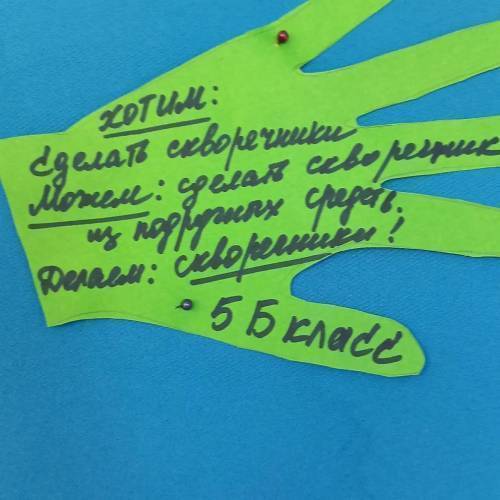 ХОТИМ:
Сделать скворечники
Можем: сделать скворечник
из подружных средств.
Делаем: скворечники!
5 Б класс